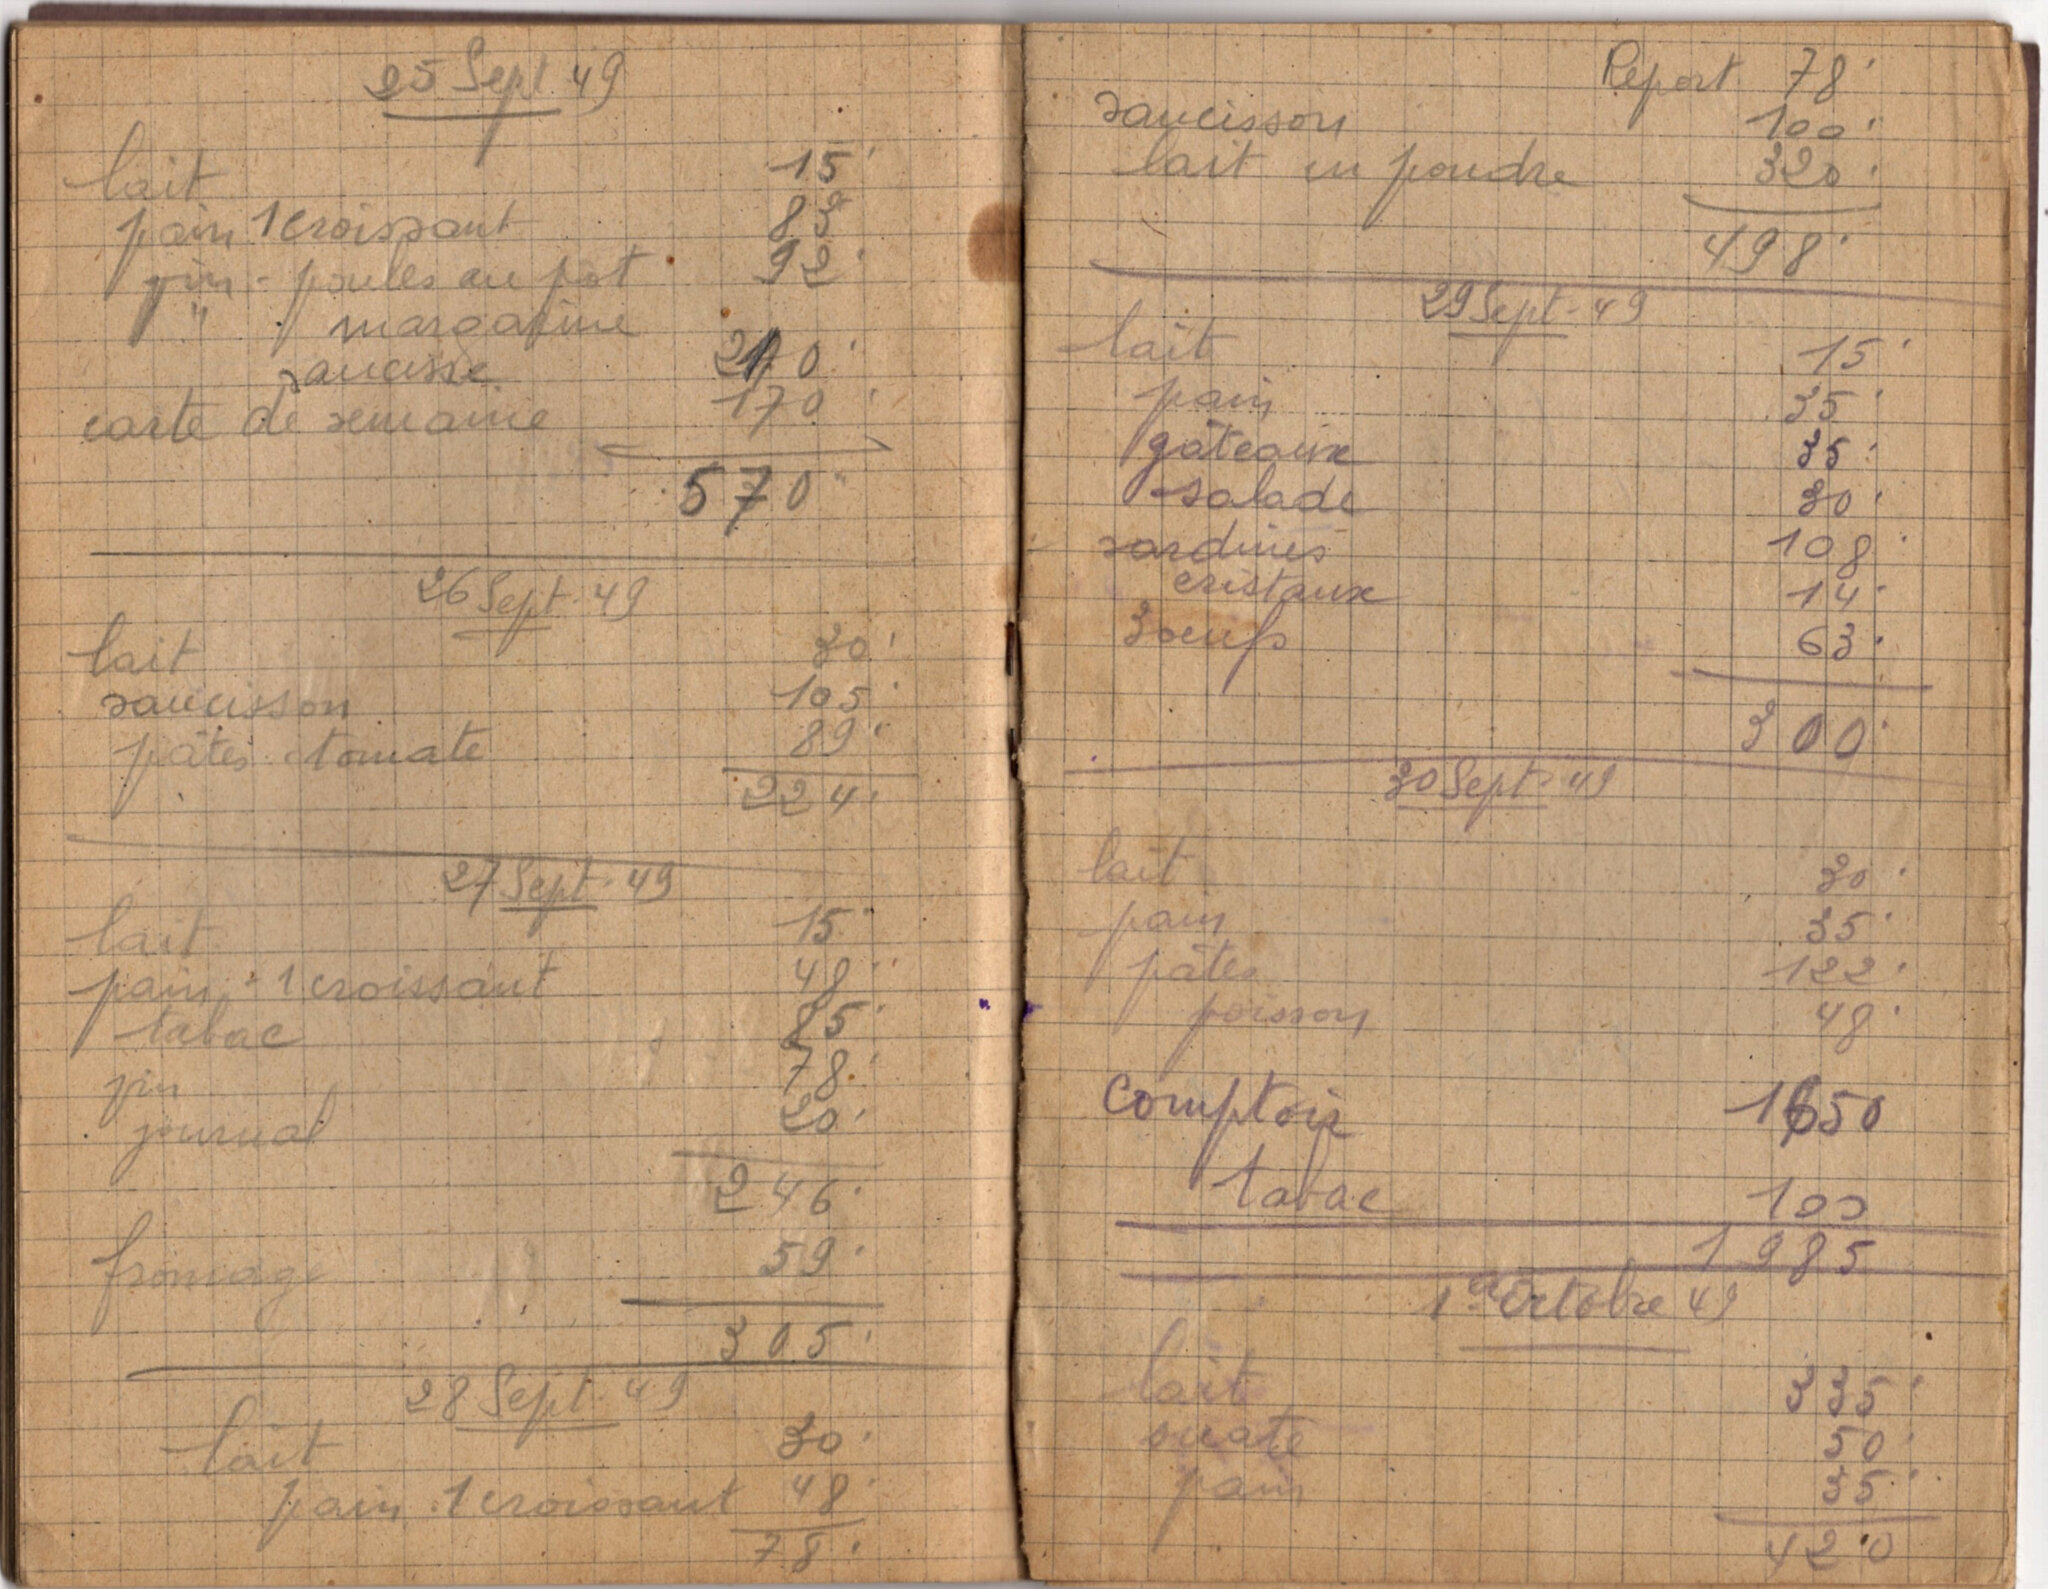 25 Sept. 49
lait 15
pain 1 croissant 83
vin - poules au pot 92
" margarine
saucisse 210
carte de semaine 170
570
26 Sept. 49
lait 30
saucisson 105
pâtes tomate 89
224
27 Sept. 49
lait 15
pain - 1 croissant 48
tabac 85
vin 78
journal 20
246
fromage 59
305
28 Sept. 49
lait 30
pain 1 croissant 48
78
Report 78
saucisson 100
lait en poudre 320
498
29 Sept. 49
lait 15
pain 35
gâteaux 35
salade 30
sardines 108
cristaux 14
3 oeufs 63
300
30 Sept. 49
lait 30
pain 35
pâtes 122
poisson 48
Comptoir 1650
tabac 100
1985
1er Octobre 49
lait 335
ouate 50
pain 35
420